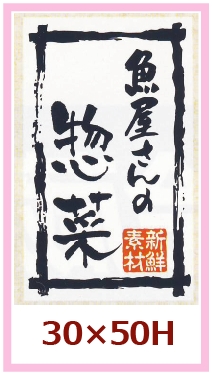 魚屋さんの
惣菜
新鮮
素材
30×50H